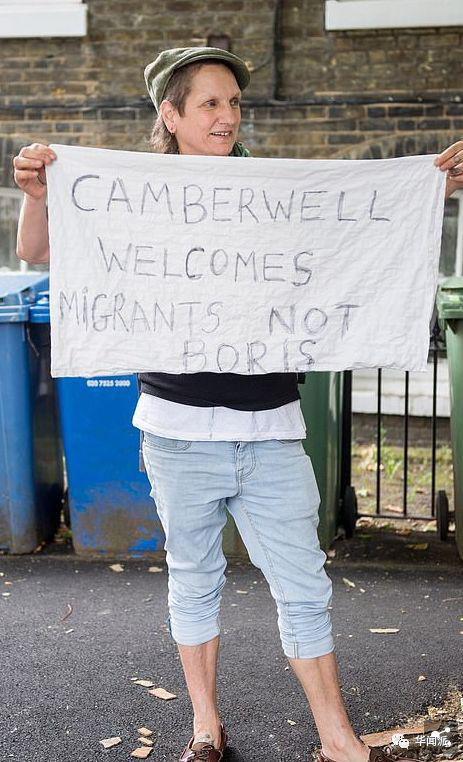 CAMBERWELL
WELCOMES
MiGRANTS NOT
BORIS
020 7525 2000
华闻派